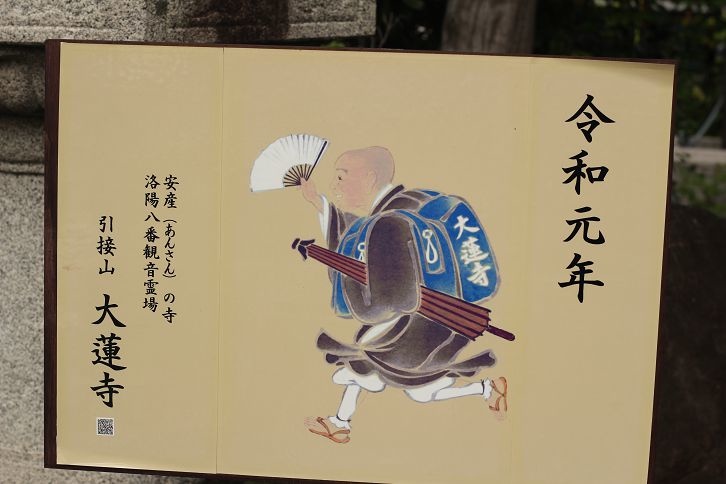 令和元年
大蓮寺
安産（あんさん）の寺
洛陽八番観音霊場
引接山 大蓮寺